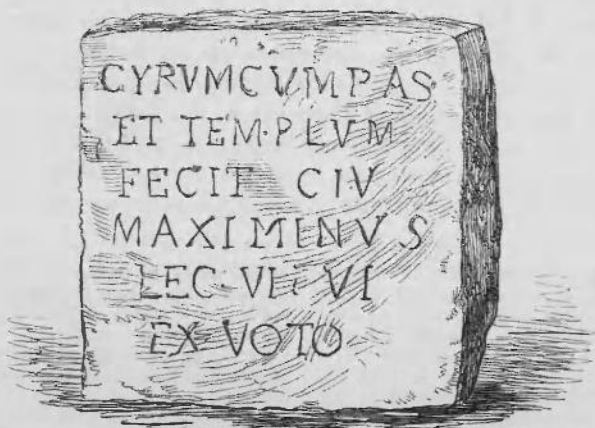 CYRVMCVMPAS
ET TEM·PLVM
FECIT CIV
MAXIMINVS
LEC VI VI
EX VOTO